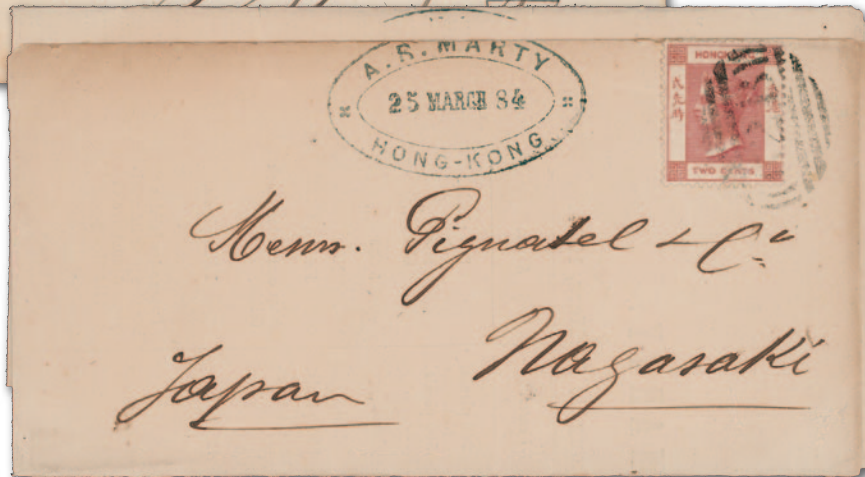 A. R. MARTY
25 MARCH 84
HONG-KONG
HONG
TWO CENTS
Messrs. Pignatel & Co.
Nagasaki
Japan